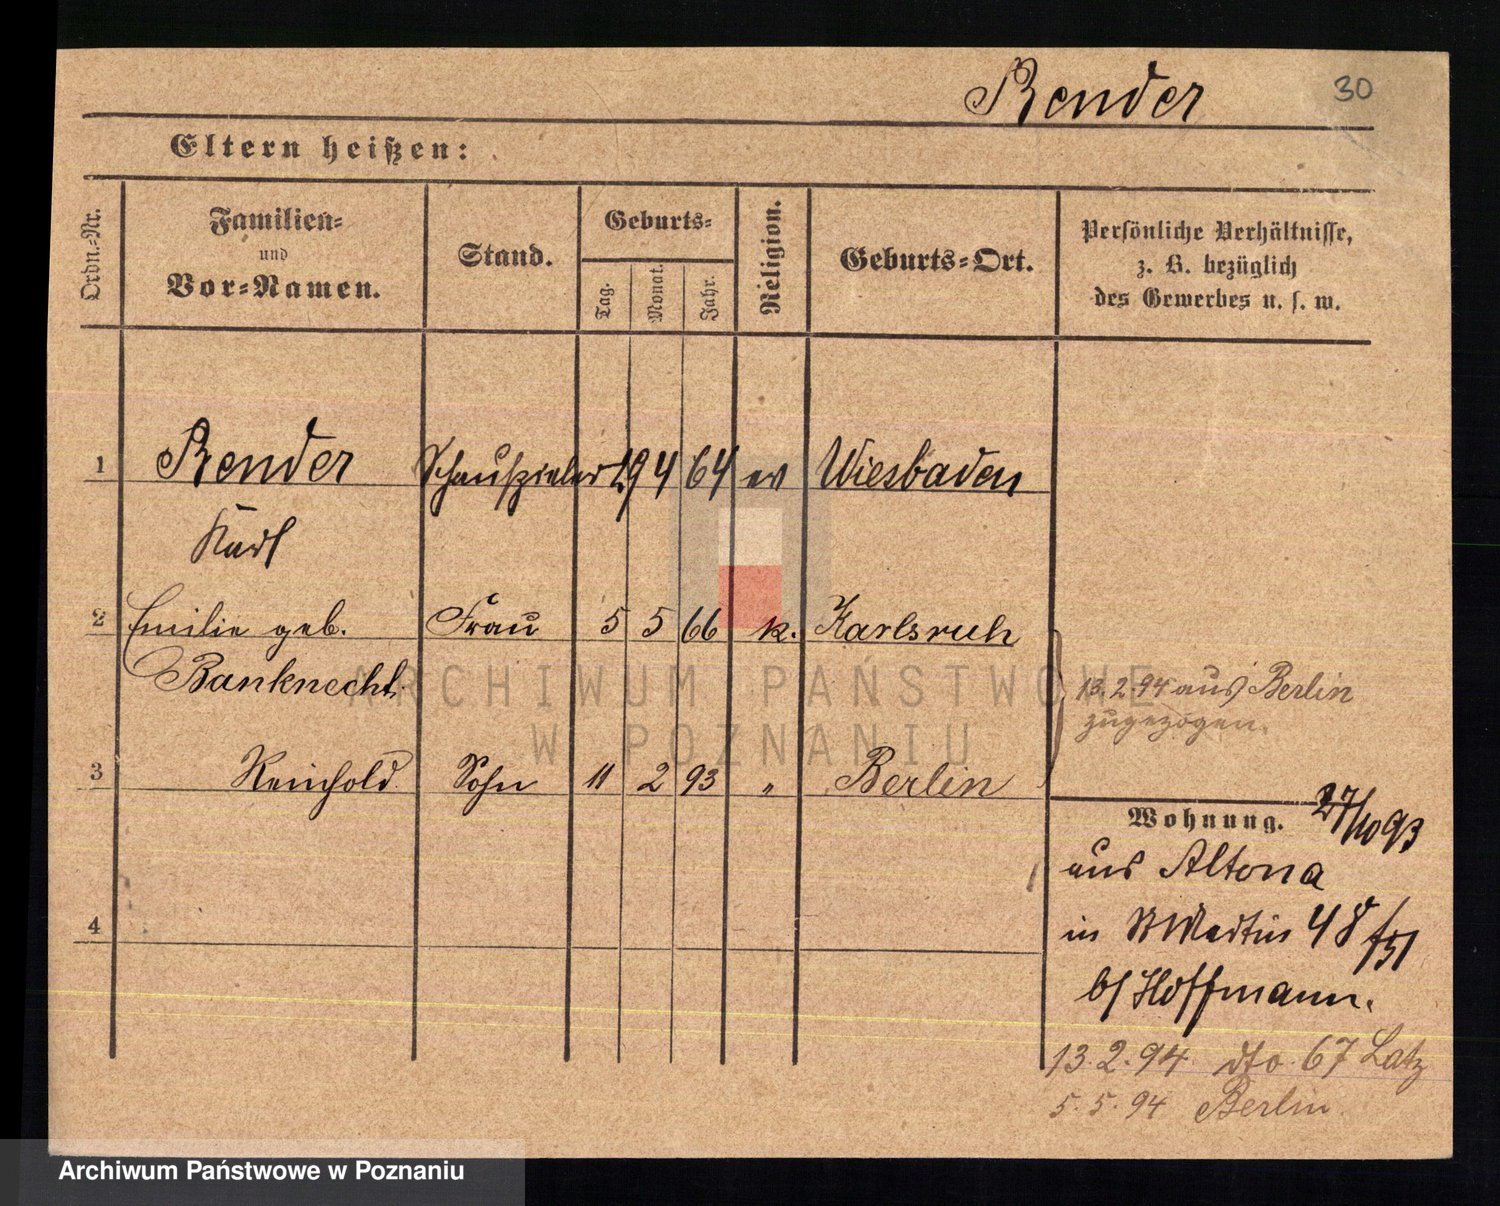 Render
30
Eltern heißen:
Ordn.-Nr.
Familien-
und
Vor-Namen.
Stand.
Geburts-
Tag.
Monat.
Jahr.
Religion.
Geburts-Ort.
Persönliche Verhältnisse,
z. B. bezüglich
des Gewerbes u. s. w.
1 Render Schauspieler 19 4 64 ev Wiesbaden
Karl
2 Emilie geb. Frau 5 5 66 k. Karlsruh
Banknecht.
13.2.94 aus Berlin
zugezogen.
3 Reinhold Sohn 11 2 93 " Berlin
Wohnung. 27/10 93
aus Altona
4
in St Martin 48/51
b/ Hoffmann.
13.2.94 dto. 67 Latz
5.5.94 Berlin
ARCHIWUM PAŃSTWOWE
W POZNANIU
Archiwum Państwowe w Poznaniu